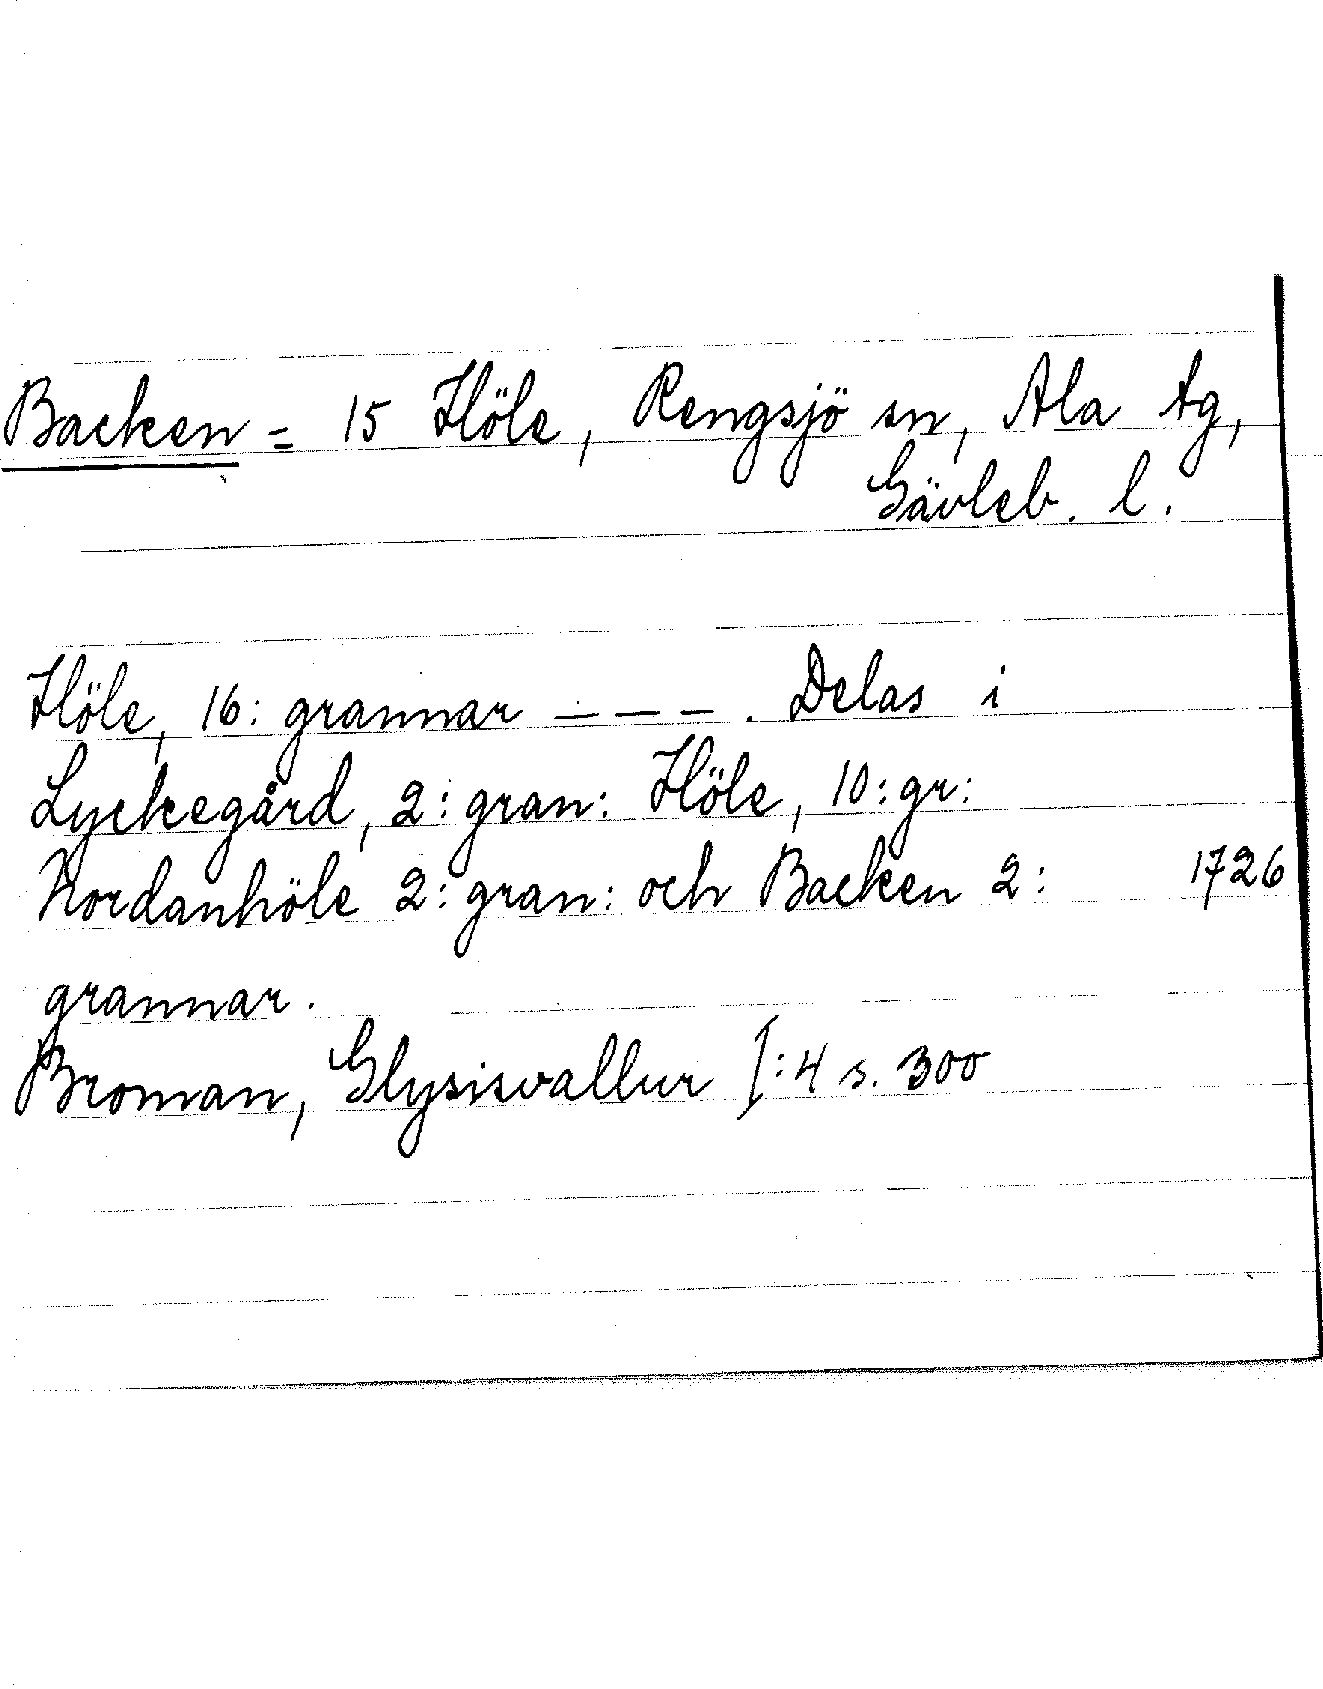 Backen = 15 Höle, Rengsjö sn, Ala tg,
Gävleb. l.
Höle, 16: grannar — — —. Delas i
Lyckegård, 2: gran: Höle, 10: gr:
Nordanhöle 2: gran: och Backen 2: 1726
grannar.
Broman, Glysisvallur I:4 s. 300